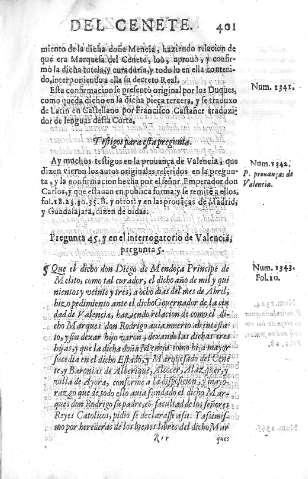 DEL CENETE. 401
miento de la dicha doña Mencia, haziendo relacion de
que era Marquesa del Cenete, loò, aprouò, y confir-
mò la dicha tutela, y curaduria, y todo lo en ella conteni-
do, interponiendo a ella su decreto Real.
Esta confirmacion se presentò original por los Duques,
como queda dicho en la dicha pieça tercera, y se traduxo
de Latin en Castellano por Francisco Custanor traduzi-
dor de lenguas desta Corte.
Num. 1341.
Testigos para esta pregunta.
Ay muchos testigos en la prouança de Valencia, que
dizen vieron los autos originales referidos en la pregun-
ta, y la confirmacion hecha por el señor Emperador don
Carlos, y que estauan en publica forma, y se remite a ellos,
fol. 18. 23. 30. 35. y otros: y en las prouanças de Madrid,
y Guadalajara, dizen de oidas.
Num. 1342.
P. prouanças de
Valencia.
Pregunta 45. y en el interrogatorio de Valencia,
pregunta 5.
Que el dicho don Diego de Mendoça Principe de
Melito, como tal curador, el dicho año de mil y qui-
nientos y veinte y tres, a ocho dias del mes de Abril,
hizo pedimiento ante el dicho Gouernador de la ciu-
dad de Valencia, haziendo relacion de como el di-
cho Marques don Rodrigo auia muerto ab intesta-
to, y sin dexar hijo varon, dexando las dichas tres
hijas, y que la dicha doña Mencia como hija mayor
sucedia en el dicho Estado, y Marquesado del Cene-
te, y Baronias de Alberique, Alcocer, Alazquer, y
villa de Ayora, conforme a la disposicion, y mayo-
razgo que de todo ello auia fundado el dicho Mar-
ques don Rodrigo su padre, cõ facultad de los señores
Reyes Catolicos, pidio se declarasse assi: Y assimis-
mo por herederas de los bienes libres del dicho Mar
Num. 1343.
Fol. 10.
Rrr ques